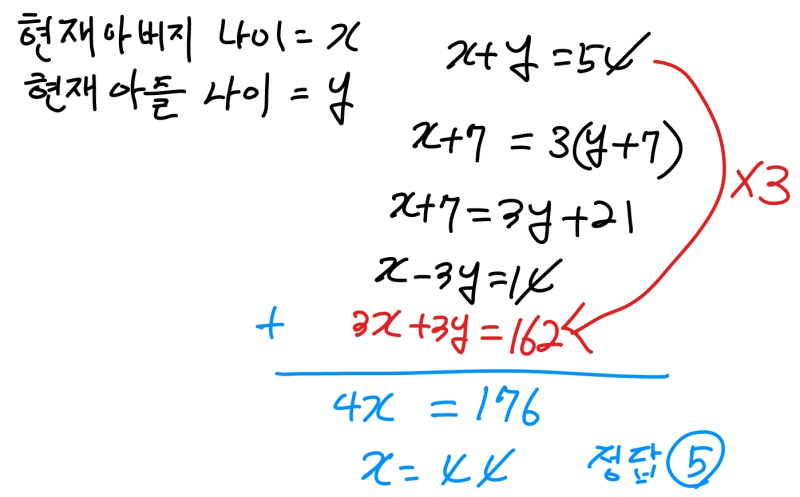 현재아버지 나이=x
현재아들 나이=y
x+y=54
x+7=3(y+7)
×3
x+7=3y+21
x-3y=14
+ 3x+3y=162
4x=176
x=44
정답 ⑤